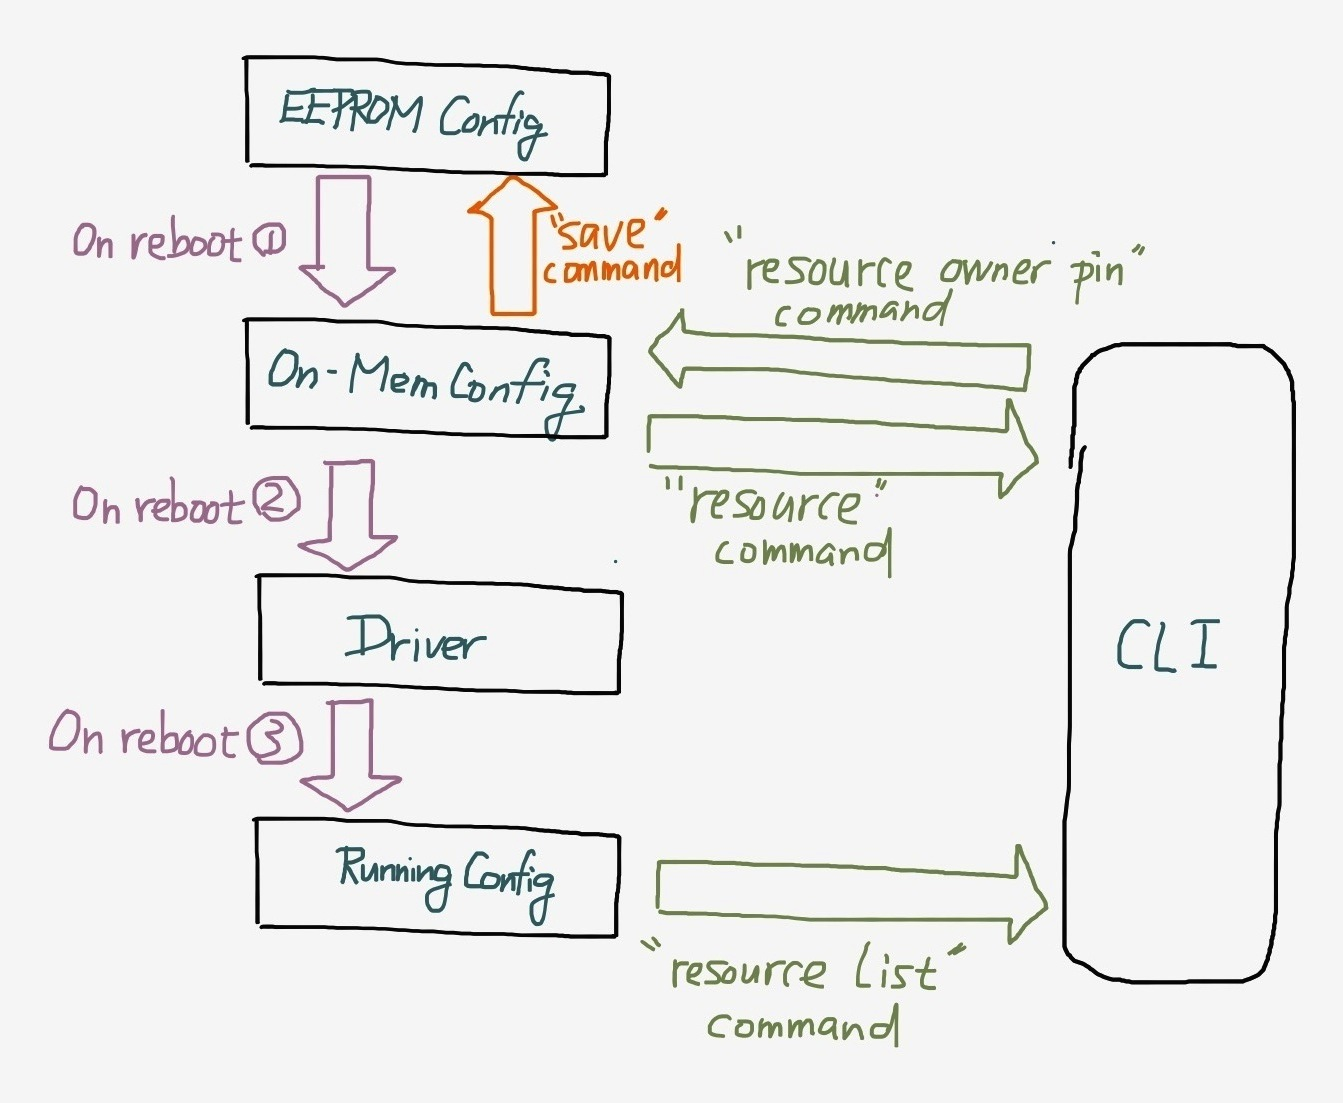 EEPROM Config
On reboot ①
"save"
command
"resource owner pin"
command
On-Mem Config
"resource"
command
On reboot ②
Driver
CLI
On reboot ③
Running Config
"resource list"
command